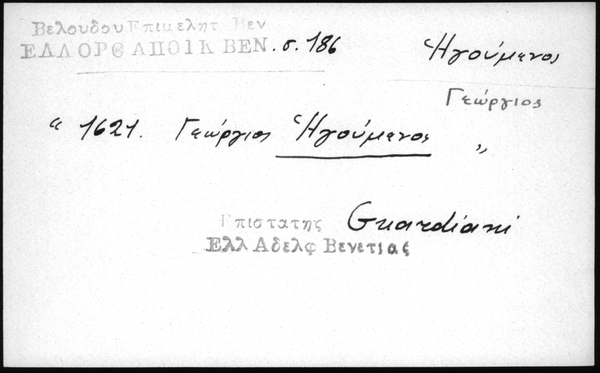 Βελουδου Επιμελητ Βεν
ΕΛΛ ΟΡΘ ΑΠΟΙΚ ΒΕΝ. σ. 186 Ἡγούμενος
Γεώργιος
“ 1621. Γεώργιος Ἡγούμενος „
Επιστατης Guardiani
Ελλ Αδελφ Βενετιας